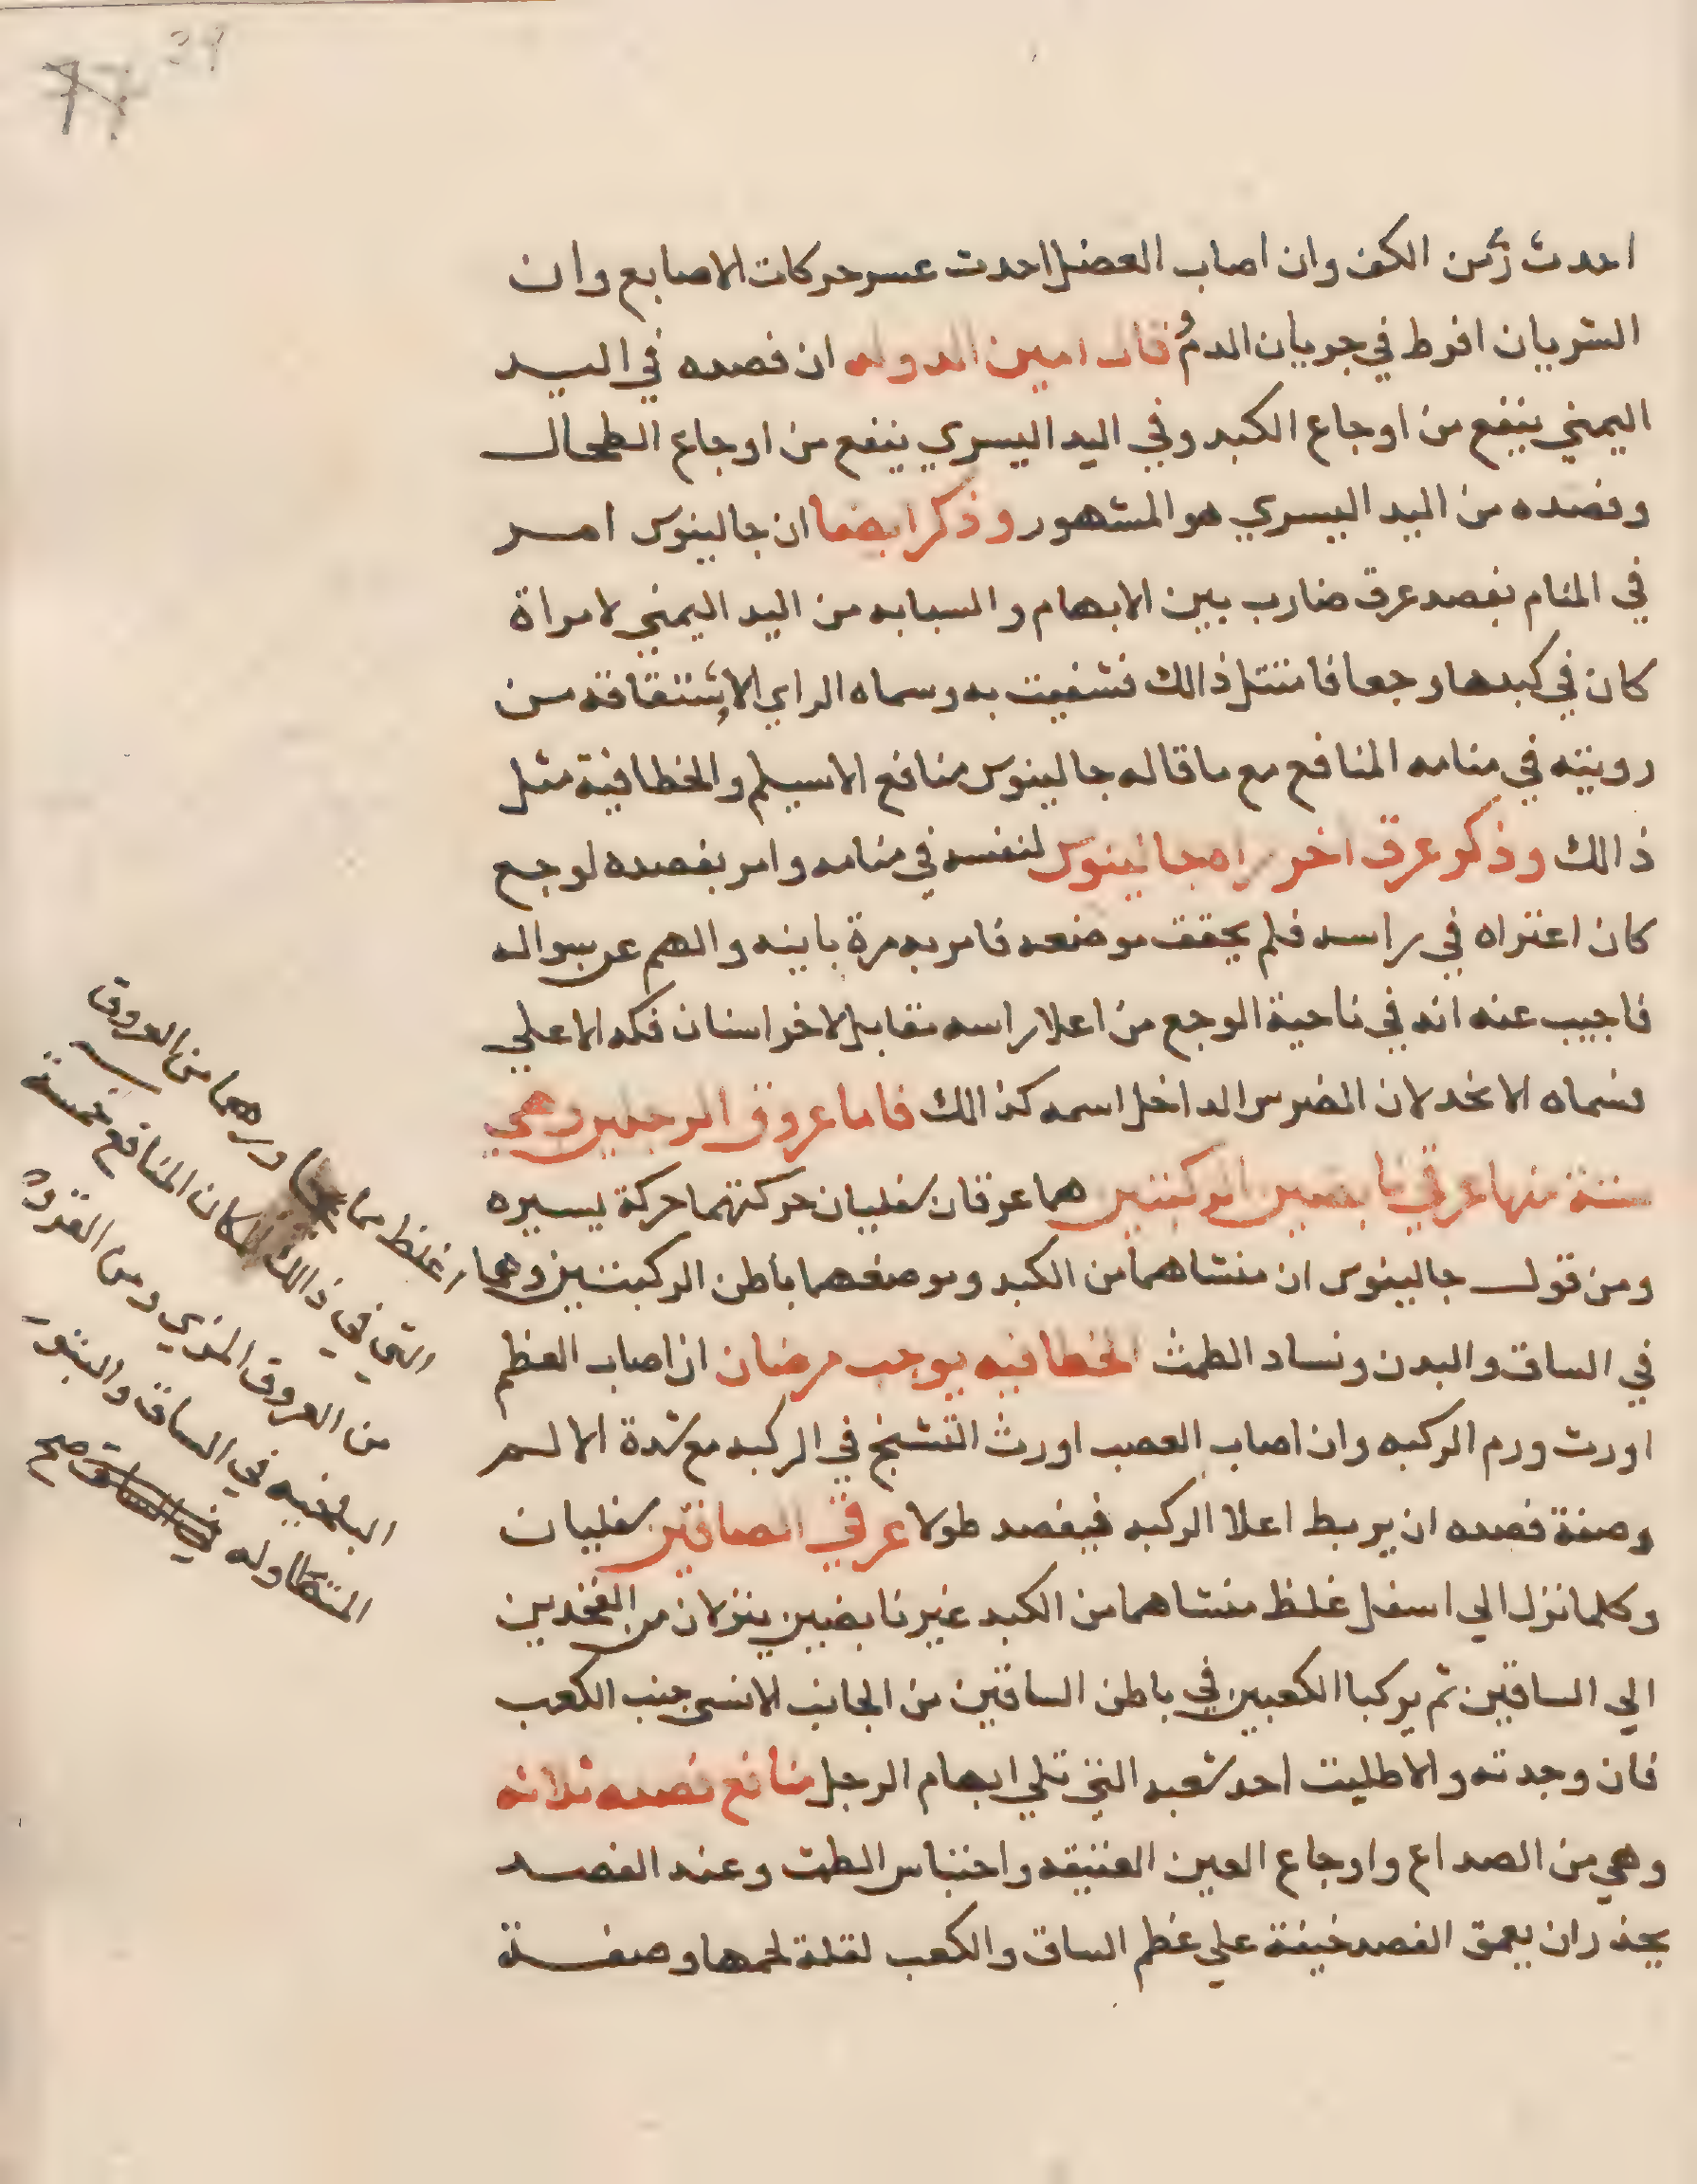 احدث زمن الكف وان اصاب العضل احدث عسر حركات الاصابع وان
الشريان افرط في جريان الدم وقال امين الدوله ان فصده في اليد
اليمني ينفع من اوجاع الكبد وفي اليد اليسري ينفع من اوجاع الطحال
وفصده من اليد اليسري هو المشهور وذكر ايضا ان جالينوس امر
في المنام بفصد عرق ضارب بين الابهام والسبابه من اليد اليمني لامراة
كان في كبدها وجعا فامتثل ذالك فشفيت به وسماه الراي الاشتقاقه من
رويته في منامه المنافع مع ما قاله جالينوس منافع الاسيلم والخطافية مثل
ذالك وذكر عرق اخر راه جالينوس لنفسه في منامه وامر بفصده لوجع
كان اعتراه في راسه فلم يحقق موضعه فامر به مرة ثانيه والهم عن سواله
فاجيب عنه انه في ناحية الوجع من اعلا راسه مقابل لاخر اسنان فكه الاعلي
فسماه الانخد لان الضرس الداخل اسمه كذالك فاما عروق الرجلين وهي
ستة منها عرقي نابضين الركبتين هما عرقان سفليان حركتهما حركة يسيره
ومن قول جالينوس ان منشاهما من الكبد وموضعهما باطن الركبتين وهما
في الساق والبدن وفساد الطمث الخطا فيه يوجب مرضان ان اصاب العظم
اورث ورم الركبه وان اصاب العصب اورث التشنج في الركبه مع شدة الالم
وصفة فصده ان يربط اعلا الركبه فيفصد طولا عرقي الصافين سفليان
وكلما نزل الي اسفل غلظ منشاهما من الكبد غير نابضين ينزلان من الفخدين
الي الساقين ثم يركبا الكعبين في باطن الساقين من الجانب الانسي جنب الكعب
فان وجدته والا طليت احد شعبه التي تلي ابهام الرجل منافع فصده ثلاثه
وهي من الصداع واوجاع العين العتيقه واحتباس الطمث وعند الفصد
يحذر ان يعمق الفصد خيفة علي عظم الساق والكعب لقلة لحمها وصفة
اغلظ مما وهما من العروق
التي في ذالك المكان المنافع خمسة
من العروق المذي ومن القروح
البلغميه في الساق والبثور
المتطاوله في الساق صح